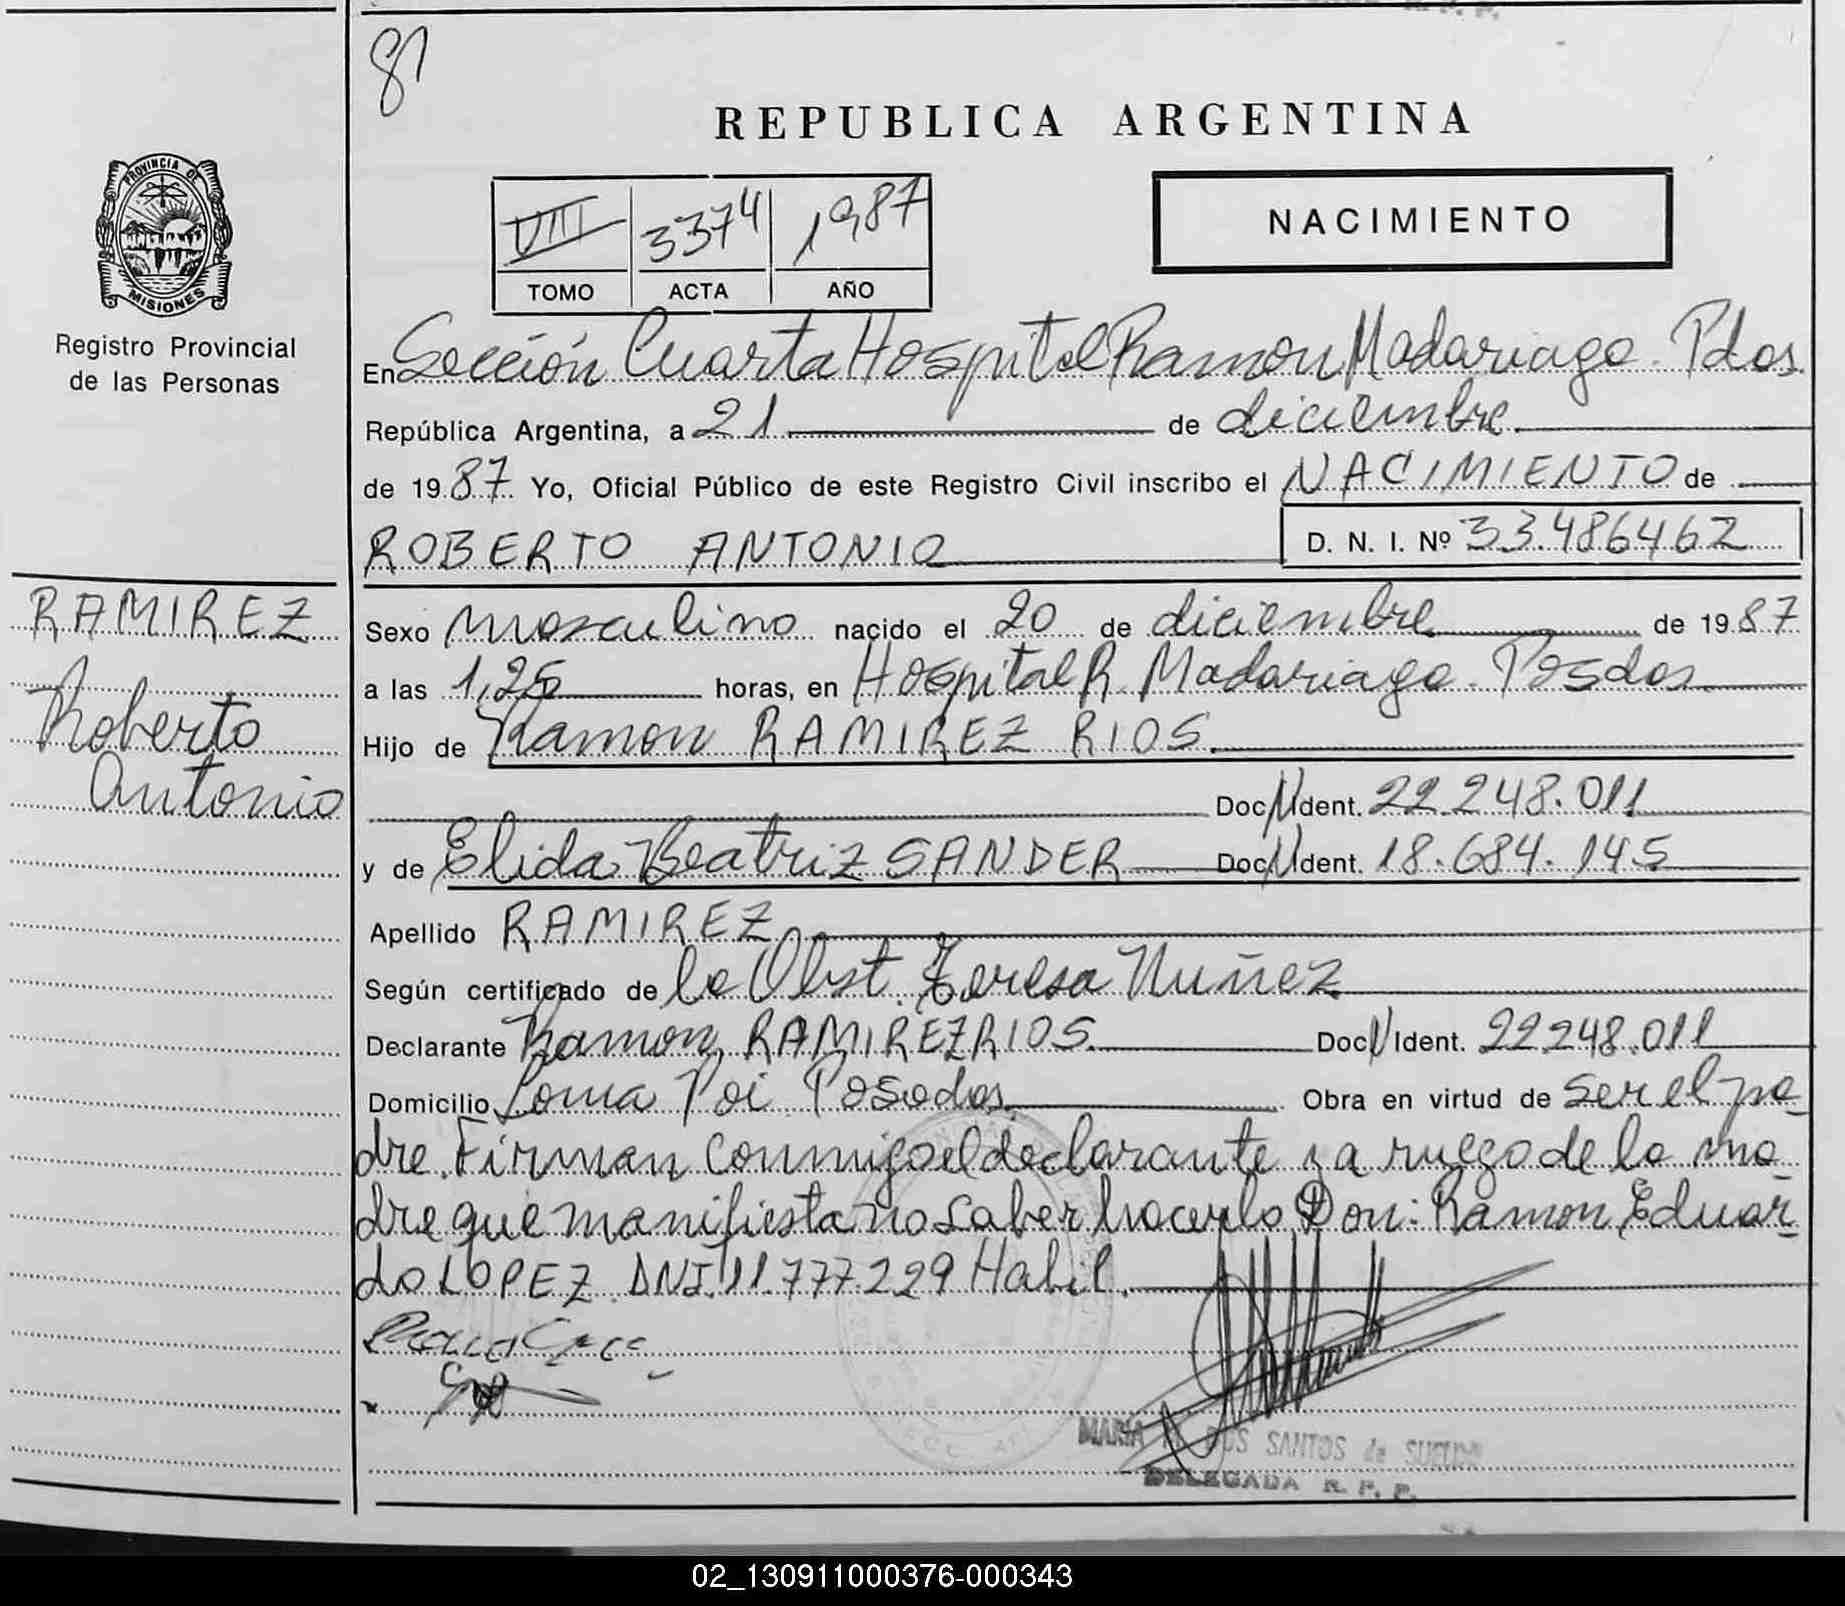 81
REPUBLICA ARGENTINA
PROVINCIA DE
MISIONES
VIII 3374 1987
TOMO ACTA AÑO
NACIMIENTO
Registro Provincial
de las Personas
En Sección Cuarta Hospital Ramon Madariaga. Pdas.
República Argentina, a 21 de diciembre
de 1987 Yo, Oficial Público de este Registro Civil inscribo el NACIMIENTO de
ROBERTO ANTONIO D. N. I. Nº 33.486462
RAMIREZ
Roberto
Antonio
Sexo masculino nacido el 20 de diciembre de 1987
a las 1,25 horas, en Hospital R. Madariaga. Posdas
Hijo de Ramon RAMIREZ RIOS.
Doc N Ident. 22.248.011
y de Elida Beatriz SANDER Doc N Ident. 18.684.145
Apellido RAMIREZ
Según certificado de la Obst. Teresa Nuñez
Declarante Ramon RAMIREZ RIOS. Doc N Ident. 22.248.011
Domicilio Loma Poi Posadas. Obra en virtud de ser el pa
dre. Firman conmigo el declarante y a ruego de la ma
dre que manifiesta no saber hacerlo Don: Ramon Eduar
do LOPEZ. DNI. 11.777.229 Habil.
MARIA DOS SANTOS de
DELEGADA R. P. P.
02_130911000376-000343